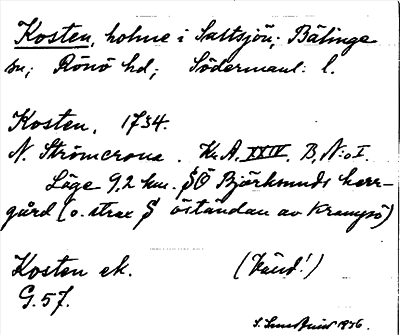 Kosten, holme i Saltsjön; Bälinge
sn; Rönö hd; Södermanl: l.
Kosten, 1734.
N. Strömcrona. Kr.A. XXIV. B, N:o I.
Läge 9,2 km. SÖ Björksunds herr-
gård (o. strax S öständan av Krampö)
Kosten ek. (Vänd!)
G. 57.
1936.